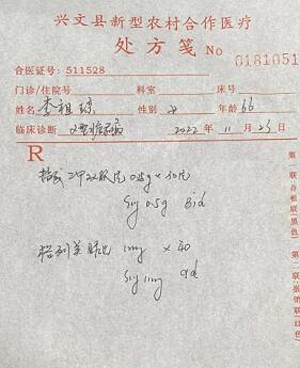 兴文县新型农村合作医疗
处方笺 No 0181051
合医证号: 511528
门诊/住院号 科室 床号
姓名 李祖琼 性别 女 年龄 66
临床诊断 2型糖尿病 2022年11月23日
R
二甲双胍片 0.5g × 30片
Sig 0.5g Bid
格列美脲片 1mg × 40
Sig 1mg qd